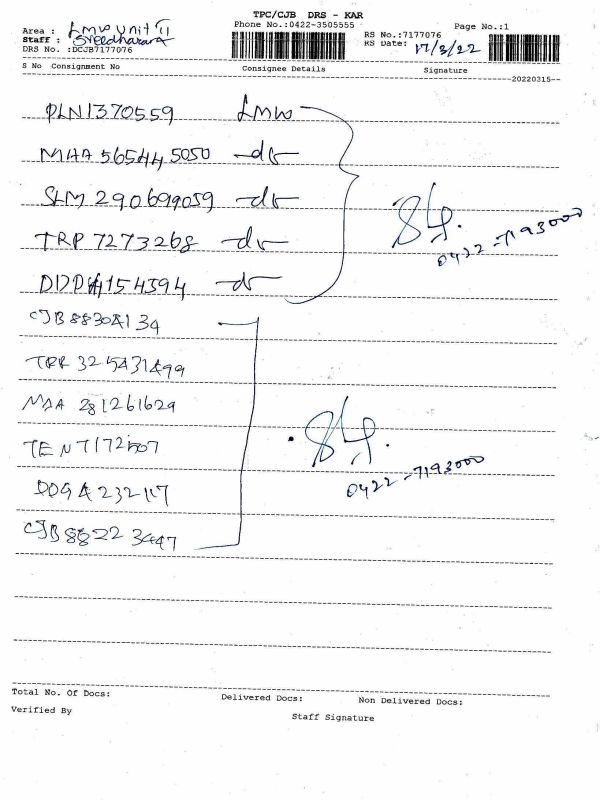 TPC/CJB DRS - KAR
Area : Lmw Unit II
Phone No.:0422-3505555
Page No.:1
Staff : Sreedharara
RS No.:7177076
DRS No. :DCJB7177076
RS Date: 17/3/22
S No Consignment No Consignee Details Signature
20220315
PLN1370559 Lmw
MAA 565445050 -do-
SLM 290699059 -do-
TRP 7273268 -do-
0422-7193000
154394 -do-
CJB 8830 134
TRR 325431499
MAA 281261629
TEN 7172507
0422-7193000
232117
CJB 88223447
Total No. Of Docs: Delivered Docs: Non Delivered Docs:
Verified By Staff Signature